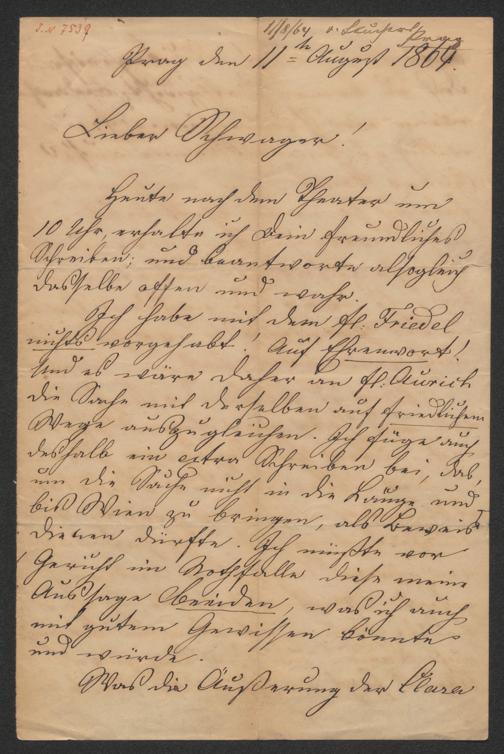 I. N 7539
11/8/64
Prag
Prag den 11ten August 1864.
Lieber Schwager!
Heute nach dem Theater um
10 Uhr, erhalte ich Dein freundliches
Schreiben; und beantworte alsogleich
dasselbe offen und wahr.
Ich habe mit dem fl: Friedel
nichts vorgehabt! Auf Ehrenwort!
Und es wäre daher an fl: Aurich
die Sache mit derselben auf friedlichem
Wege auszugleichen. Ich füge auch
deshalb ein extra Schreiben bei, das,
um die Sache nicht in die Länge und
bis Wien zu bringen, als Beweis
dienen dürfte. Ich müßte vor
Gericht im Nothfalle diese meine
Aussage beeiden, was ich auch
mit gutem Gewissen könnte
und würde.
Was die Äußerung der Clara